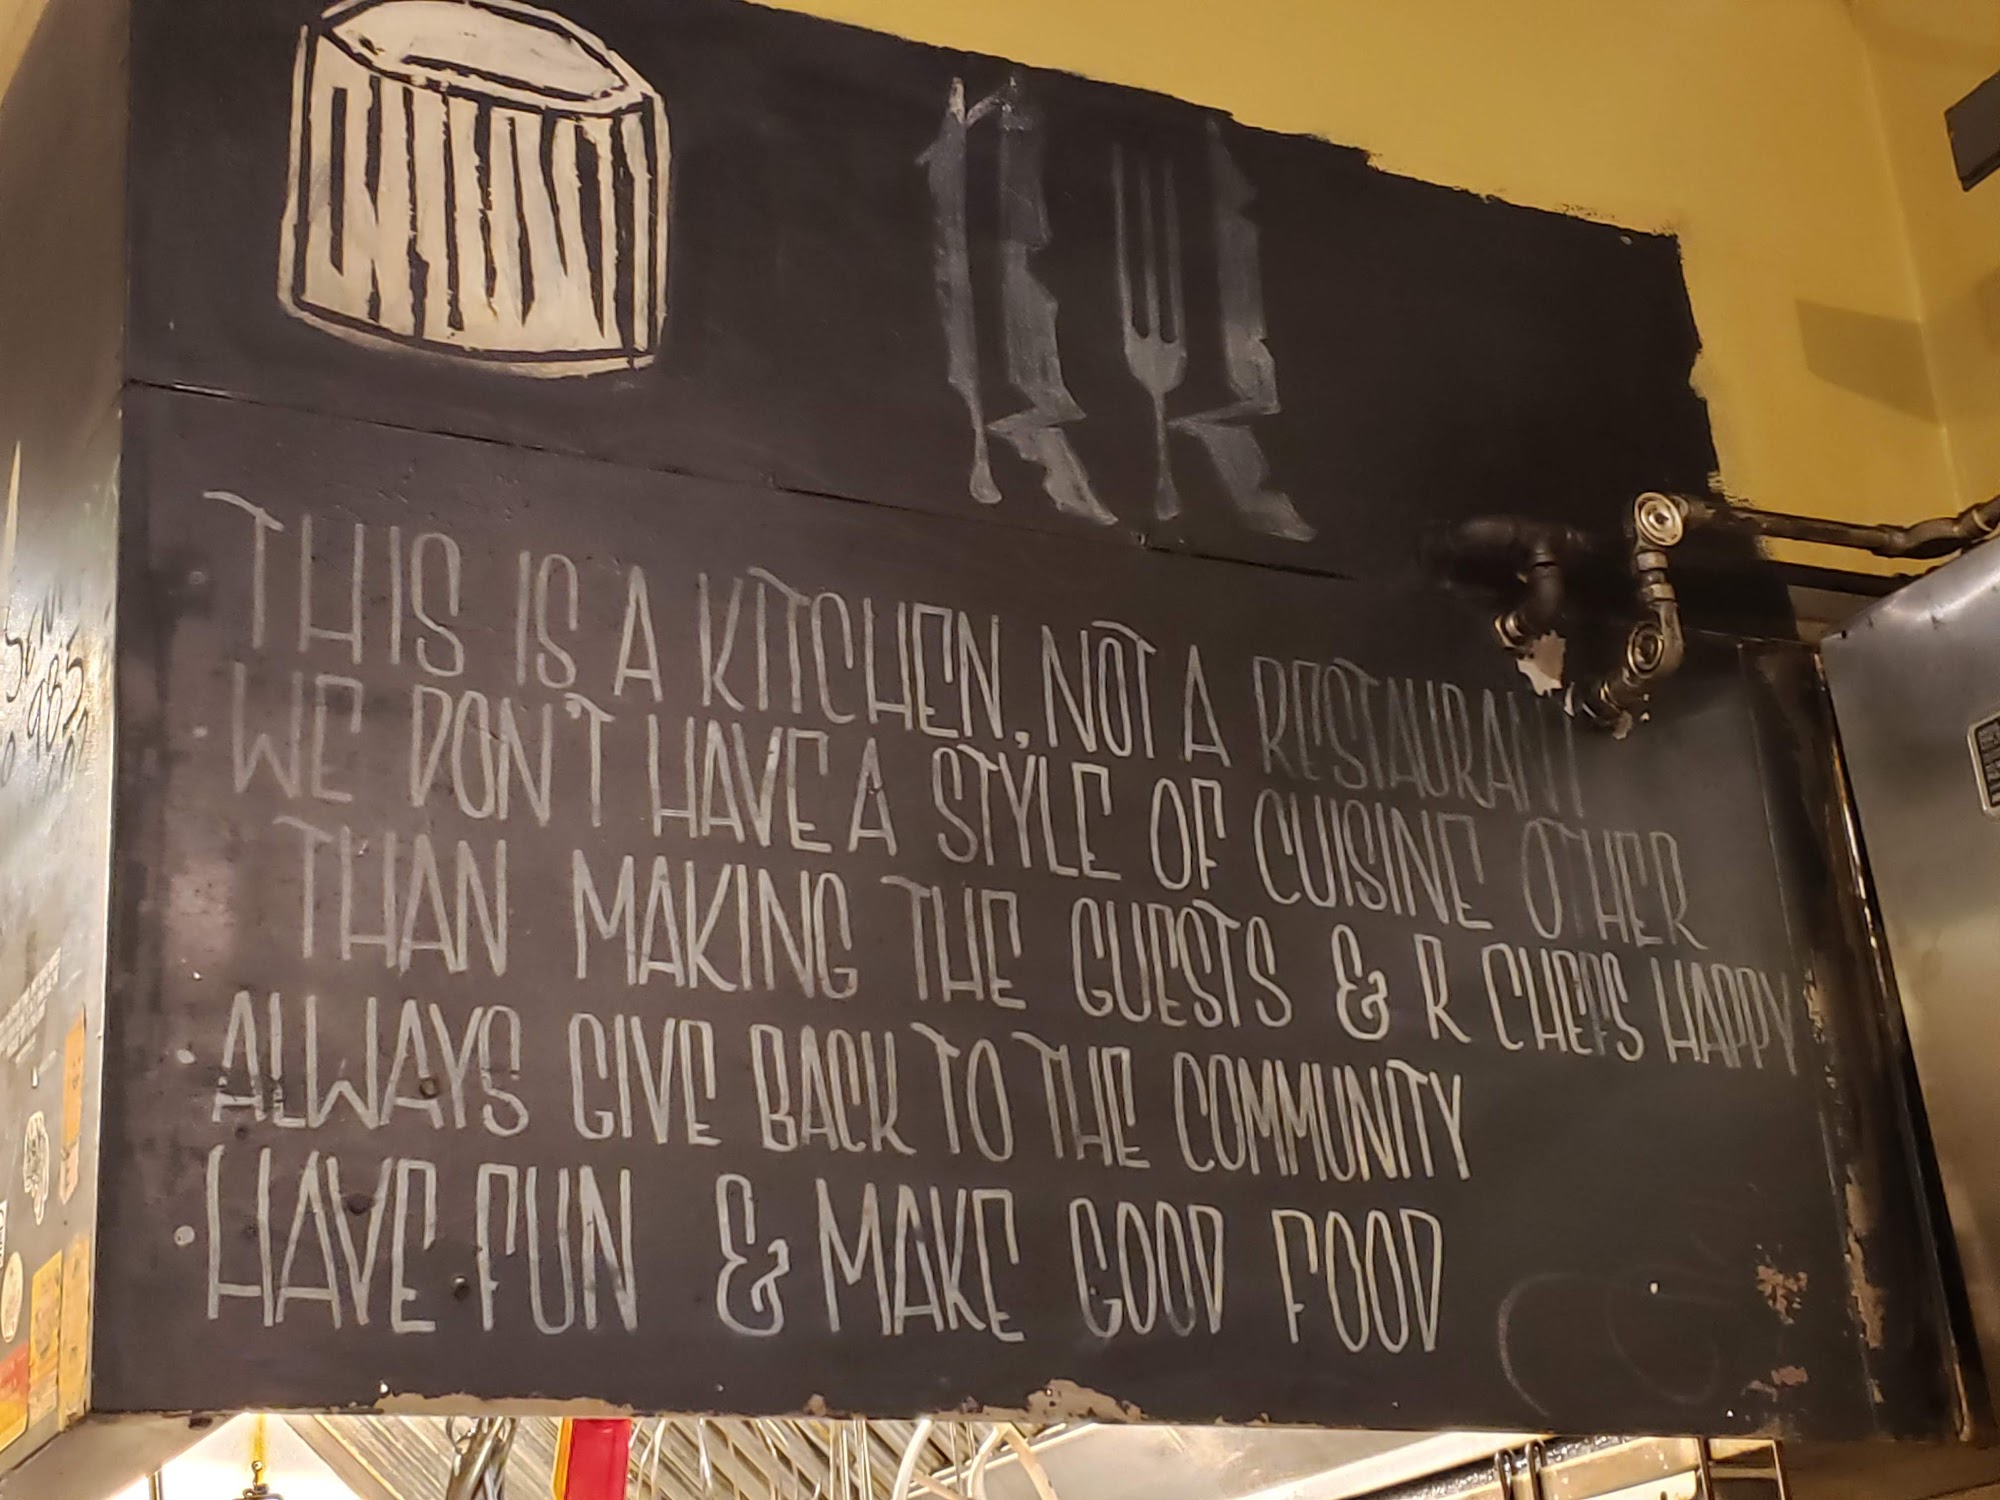 THIS IS A KITCHEN, NOT A RESTAURANT
· WE DON'T HAVE A STYLE OF CUISINE OTHER
THAN MAKING THE GUESTS & R CHEFS HAPPY
· ALWAYS GIVE BACK TO THE COMMUNITY
· HAVE FUN & MAKE GOOD FOOD